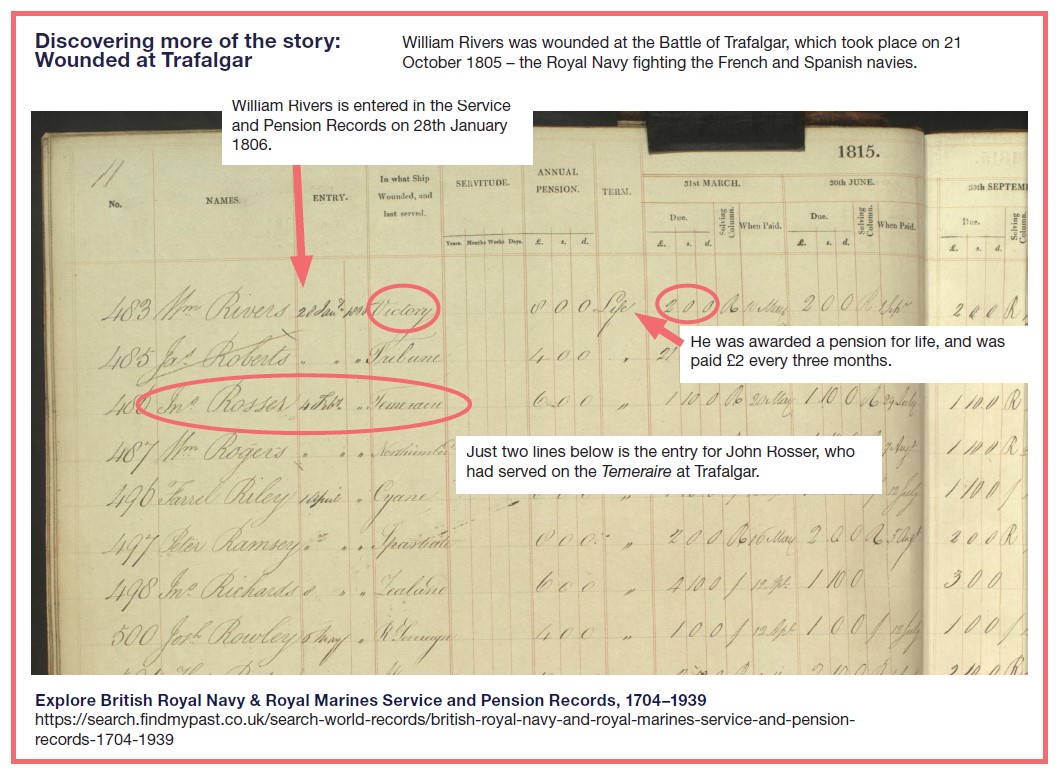 Discovering more of the story:
Wounded at Trafalgar
William Rivers was wounded at the Battle of Trafalgar, which took place on 21
October 1805 – the Royal Navy fighting the French and Spanish navies.
William Rivers is entered in the Service
and Pension Records on 28th January
1806.
11
1815.
No.
NAMES.
ENTRY.
In what Ship
Wounded, and
last served.
SERVITUDE.
Years. Months Weeks Days.
ANNUAL
PENSION.
£. s. d.
TERM.
31st MARCH.
Due.
£. s. d.
Solving
Column.
When Paid.
30th JUNE.
Due.
£. s. d.
Solving
Column.
When Paid.
30th SEPTEM
Due.
£. s. d.
Solving
Column.
483 Wm Rivers 28 Jany 1806 Victory 8 0 0 Life 2 0 0 R 2 0 0 R 2 0 0 R
He was awarded a pension for life, and was
paid £2 every three months.
485 Jas Roberts " " " Tribune 4 0 0 "
486 Jno Rosser 4 Feby " Temeraire 6 0 0 " 1 10 0 R 20 May 1 10 0 R 29 July 1 10 0 R
Just two lines below is the entry for John Rosser, who
had served on the Temeraire at Trafalgar.
487 Wm Rogers " " " 1 10 0 R
496 Farrel Riley 1 April " Cyane 12 July 1 10 0
497 Peter Ramsey " " " Spartiate 8 0 0 " 2 0 0 R 16 May 2 0 0 R 2 0 0 R
498 Jno Richards " " Zealand 6 0 0 4 10 0 1 10 0 3 0 0
500 Josh Rowley 5 May " 4 0 0 " 1 0 0 12 Apl 1 0 0 12 July 1 0 0
Explore British Royal Navy & Royal Marines Service and Pension Records, 1704–1939
https://search.findmypast.co.uk/search-world-records/british-royal-navy-and-royal-marines-service-and-pension-
records-1704-1939